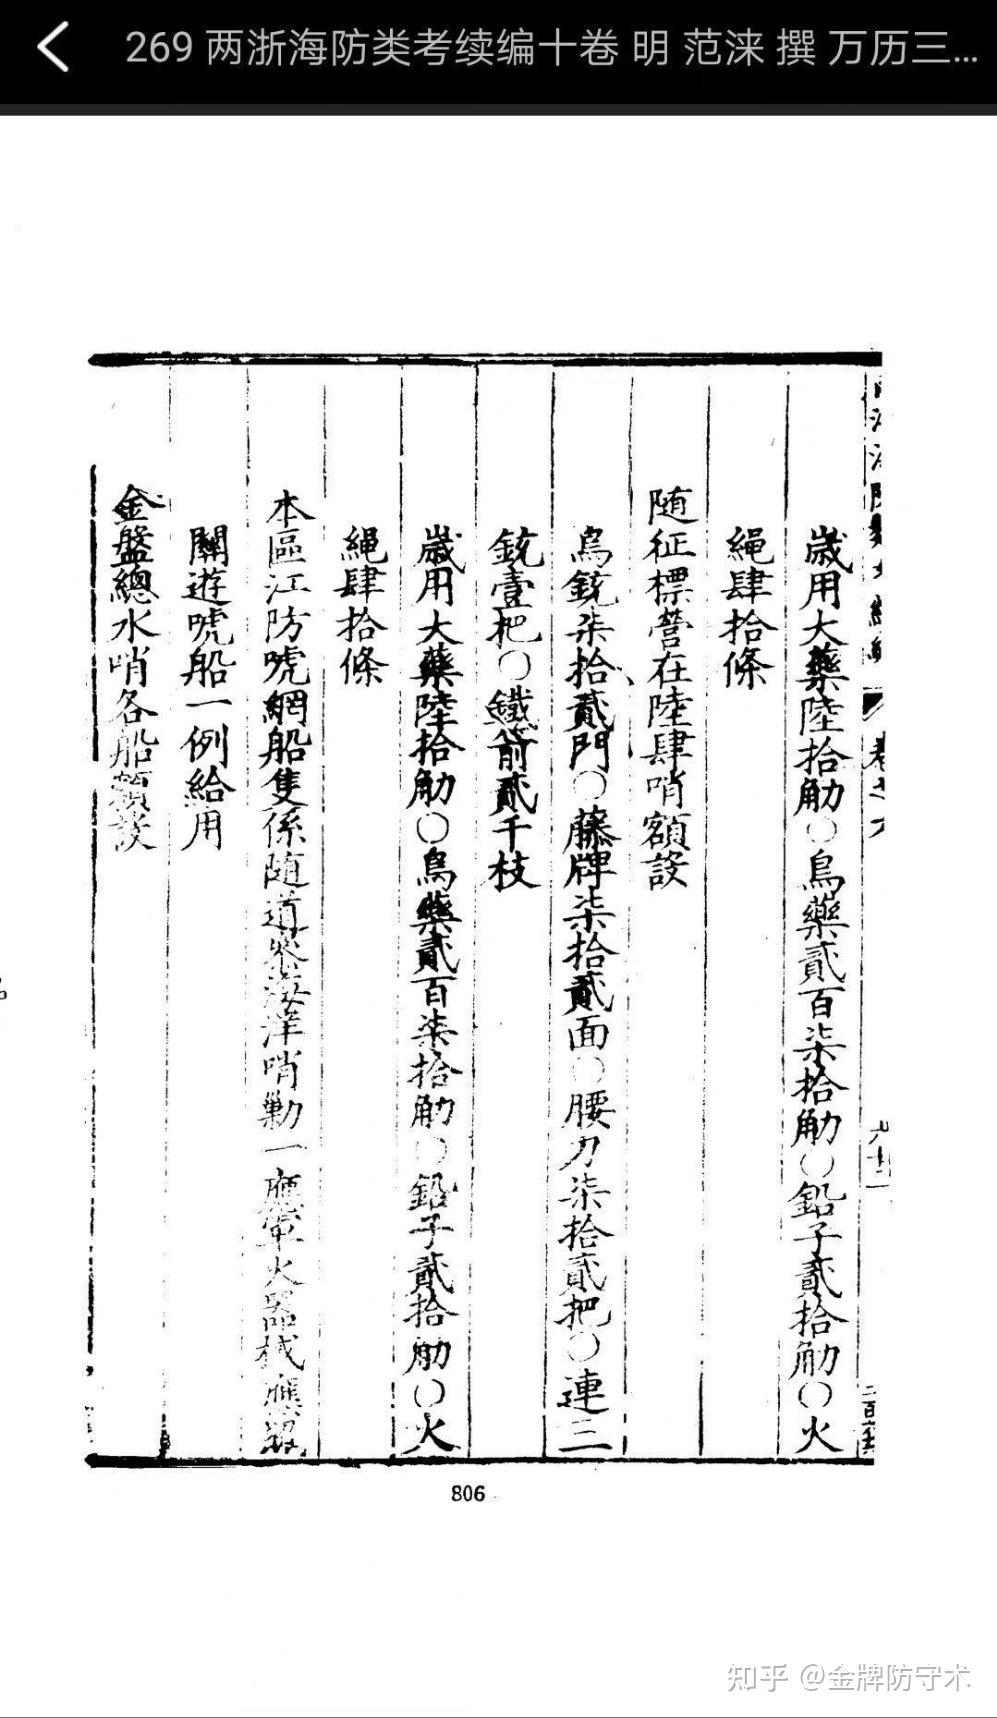 269 两浙海防类考续编十卷 明 范涞 撰 万历三...
歲用大藥陸拾觔〇鳥藥貳百柒拾觔〇鉛子貳拾觔〇火
繩肆拾條
随征標營在陸肆哨額設
鳥銃柒拾貳門〇藤牌柒拾貳面〇腰刀柒拾貳把〇連三
銃壹把〇鐵箭貳千枝
歲用大藥陸拾觔〇鳥藥貳百柒拾觔〇鉛子貳拾觔〇火
繩肆拾條
本區江防唬網船隻係随道海洋哨勦一應軍火器械應
關遊唬船一例給用
金盤總水哨各船額設
806
知乎 @金牌防守术